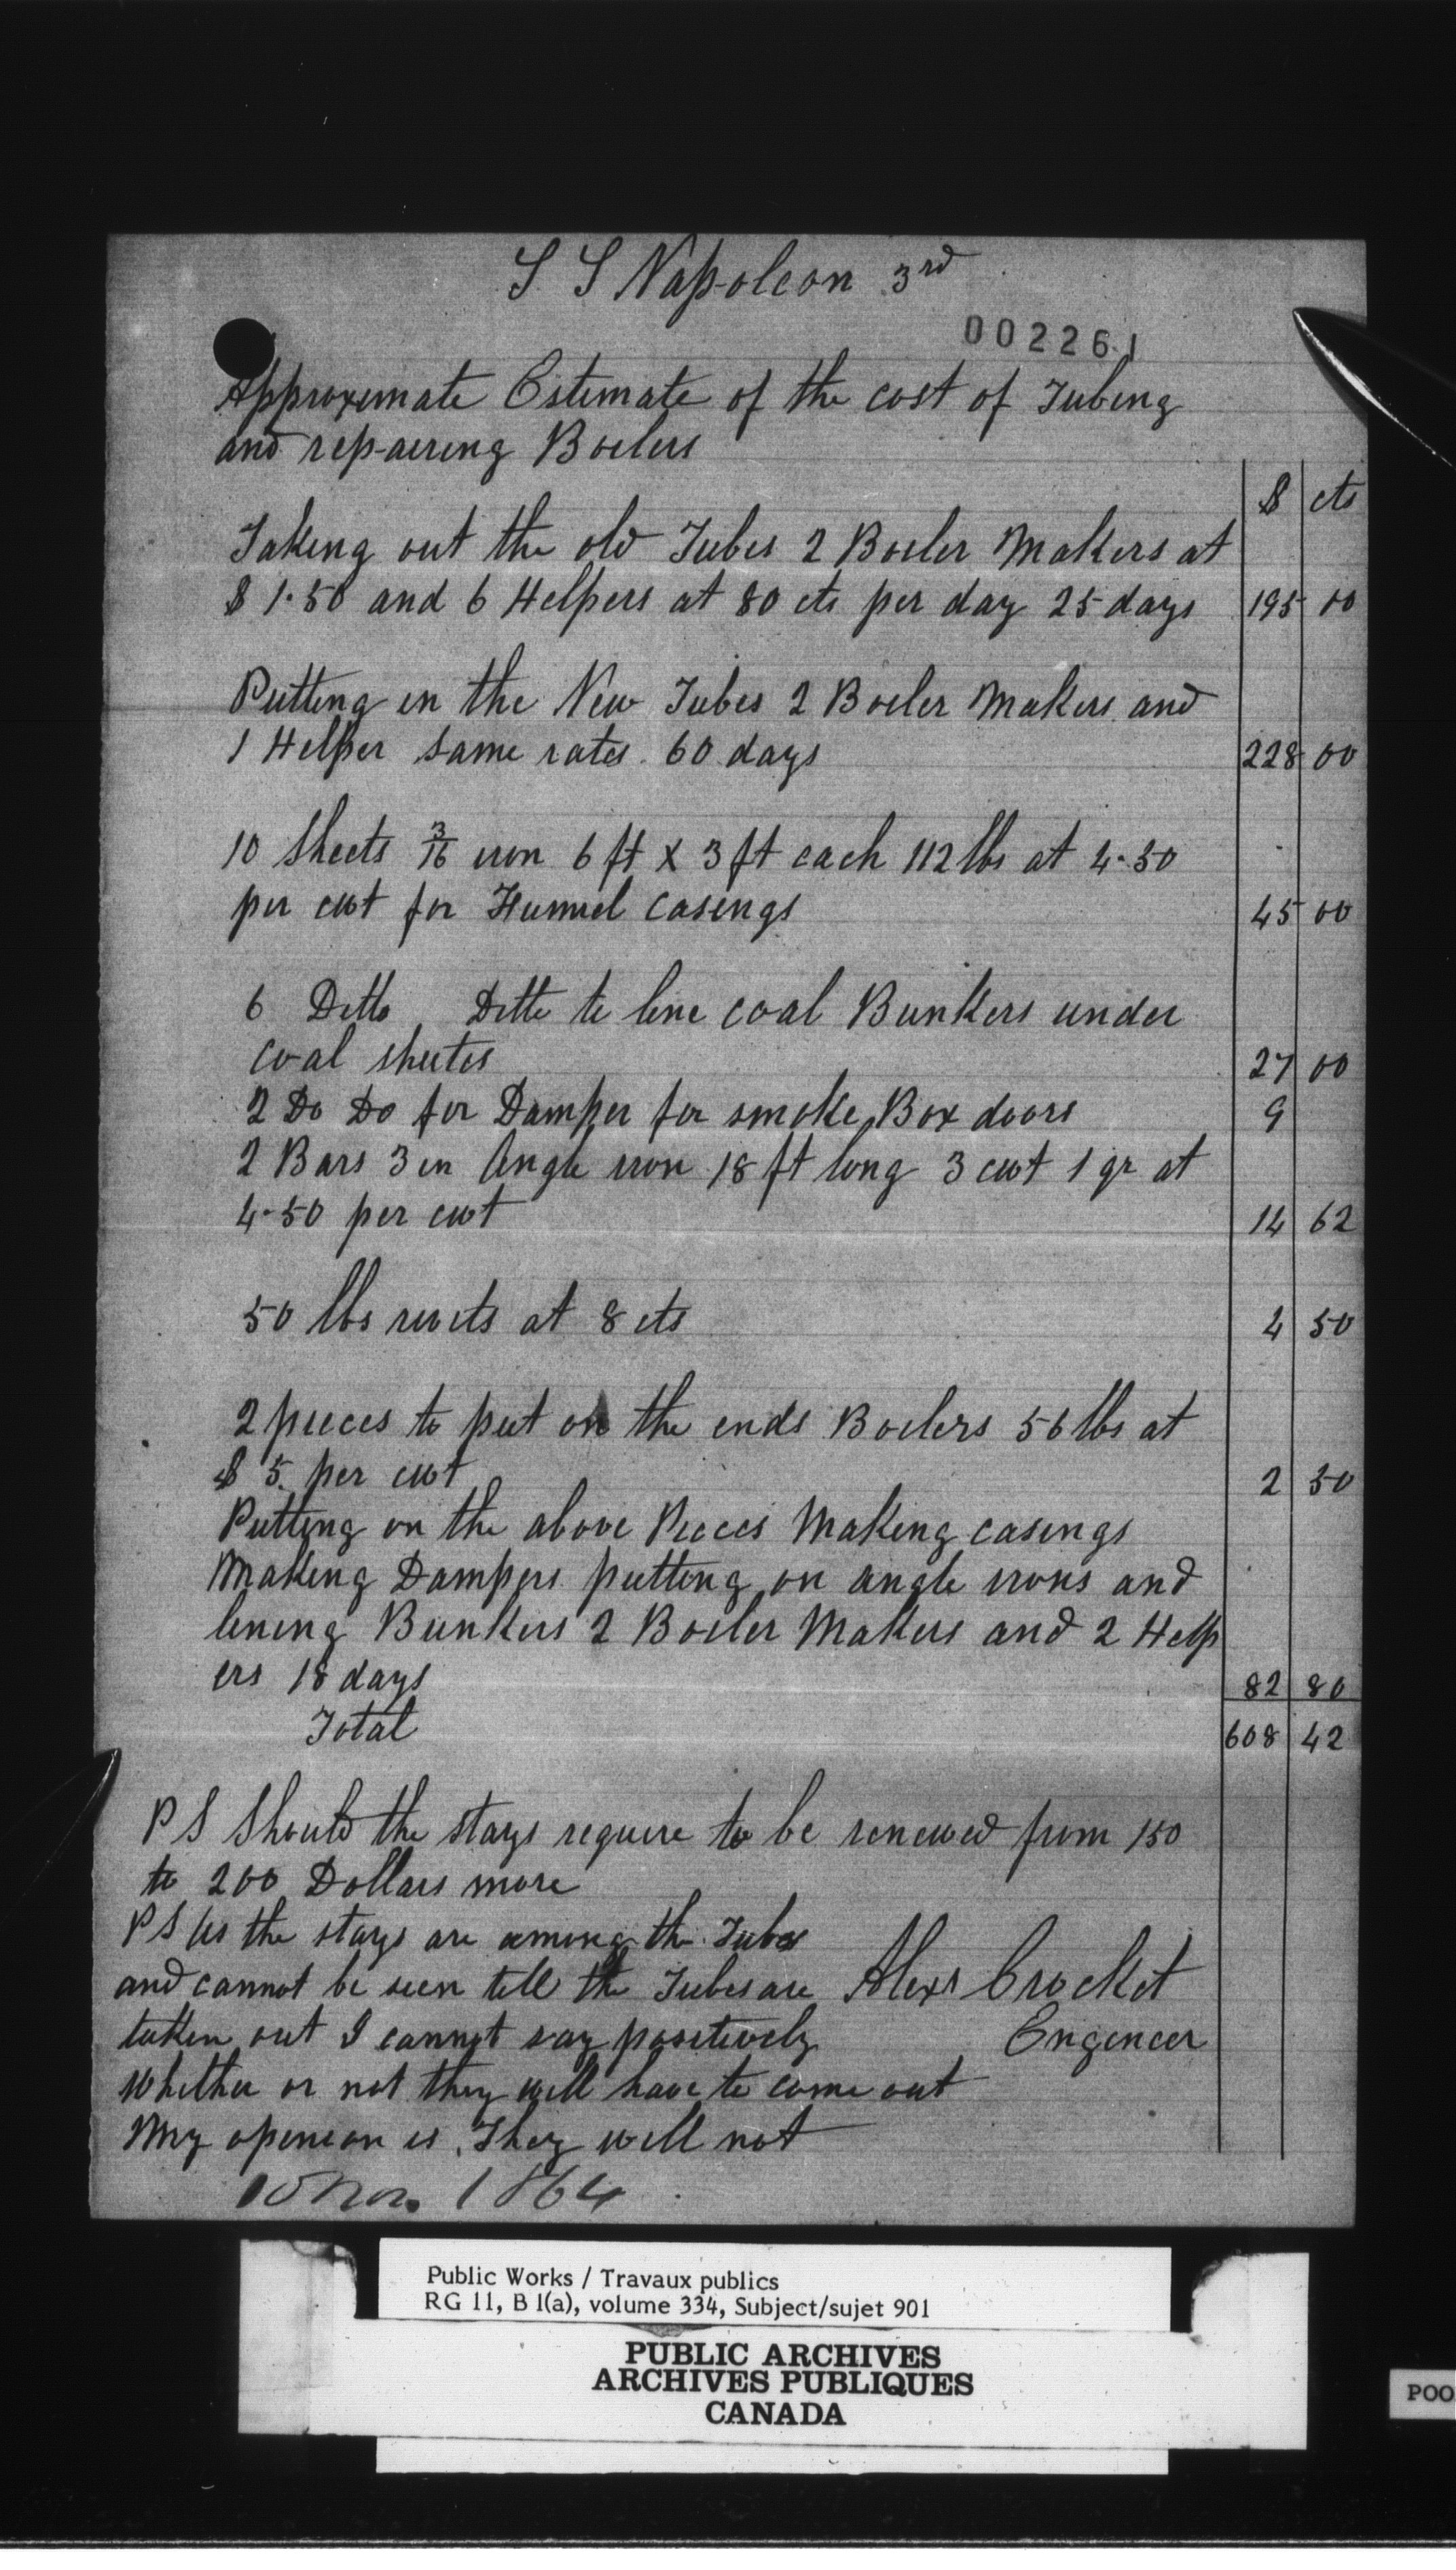 S S Napoleon 3rd
002261
Approximate Estimate of the cost of Tubing
and repairing Boilers
$ cts
Taking out the old Tubes 2 Boiler Makers at
$ 1.50 and 6 Helpers at 80 cts per day 25 days 195 00
Putting in the New Tubes 2 Boiler Makers and
1 Helper same rates. 60 days 228 00
10 Sheets 3/16 iron 6 ft X 3 ft each 112 lbs at 4.50
per cwt for Funnel Casings 45 00
6 Ditto Ditto to line coal Bunkers under
coal shutes 27 00
2 Do Do for Damper for smoke Box doors 9
2 Bars 3 in Angle iron 18 ft long 3 cwt 1 qr at
4.50 per cwt 14 62
50 lbs rivets at 8 cts 4 50
2 pieces to put on the ends Boilers 56 lbs at
$ 5. per cwt 2 50
Putting on the above Pieces Making casings
Making Dampers putting on angle irons and
lining Bunkers 2 Boiler Makers and 2 Help
ers 18 days 82 80
Total 608 42
PS Should the stays require to be renewed from 150
to 200 Dollars more
PS As the stays are among the Tubes
and cannot be seen till the Tubes are Alexr Crocket
taken out I cannot say positively Engineer
Whether or not they will have to come out
My opinion is They will not
10 Nov. 1864
Public Works / Travaux publics
RG 11, B 1(a), volume 334, Subject/sujet 901
PUBLIC ARCHIVES
ARCHIVES PUBLIQUES
CANADA
POO